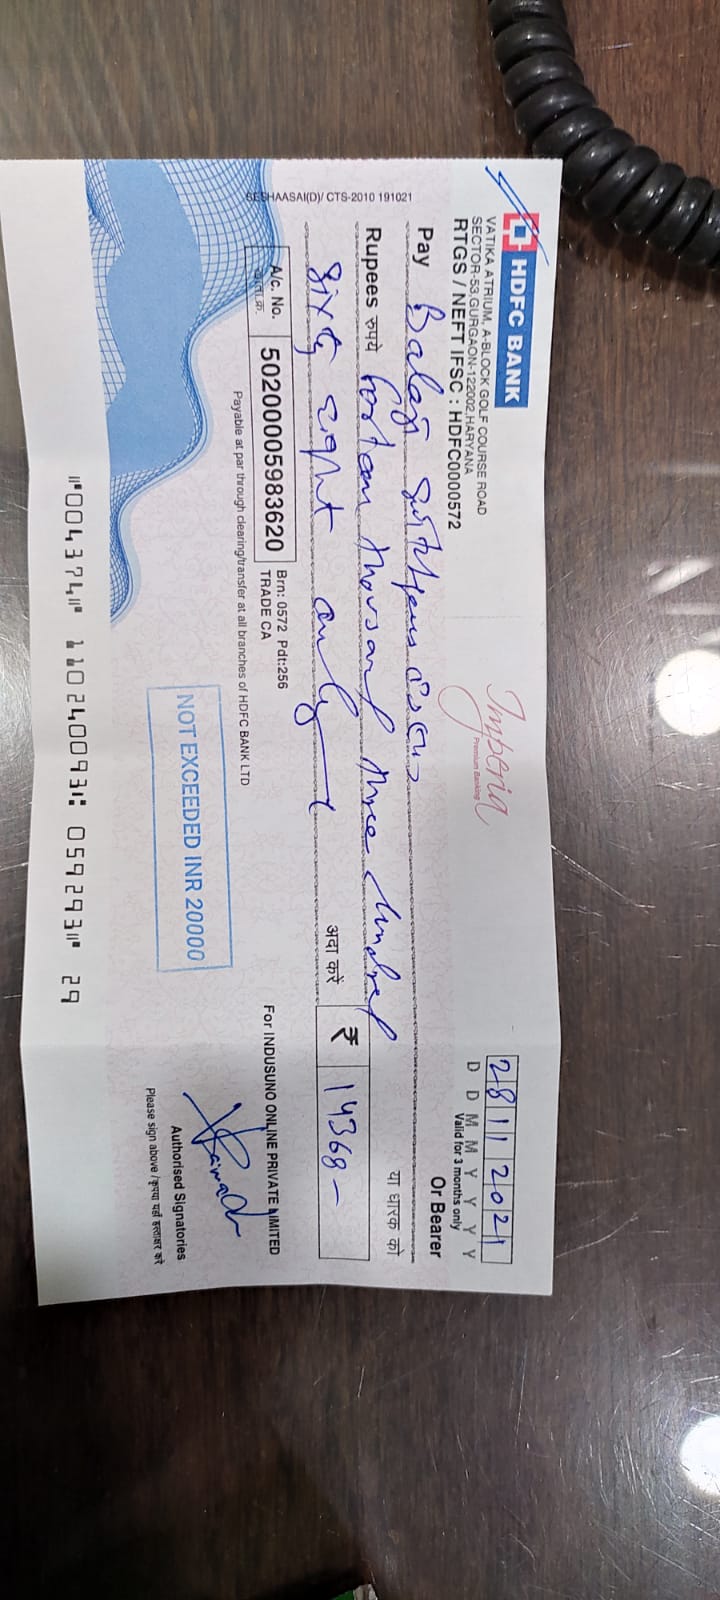 HDFC BANK
VATIKA ATRIUM, A-BLOCK GOLF COURSE ROAD
SECTOR-53,GURGAON-122002,HARYANA
RTGS / NEFT IFSC : HDFC0000572
Imperia
Premium Banking
28112021
D D M M Y Y Y Y
Valid for 3 months only
Pay Balaji
Or Bearer
या धारक को
Rupees रुपये thousand three hundred
sixty eight only
अदा करें ₹ 14368-
A/c. No. 50200005983620
Brn: 0572 Pdt:256
TRADE CA
Payable at par through clearing/transfer at all branches of HDFC BANK LTD
SESHAASAI(D)/ CTS-2010 191021
For INDUSUNO ONLINE PRIVATE LIMITED
NOT EXCEEDED INR 20000
Authorised Signatories
Please sign above / कृपया यहाँ हस्ताक्षर करें
⑈004374⑈ 110240093⑆ 059293⑈ 29